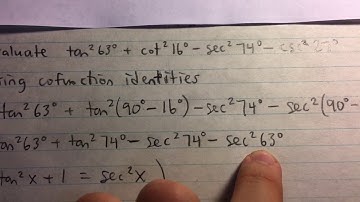 aluate tan²63° + cot²16° - sec²74° - csc²27°
ing cofunction identities
tan²63° + tan²(90° - 16°) - sec²74° - sec²(90° -
an²63° + tan²74° - sec²74° - sec²63°
tan²x + 1 = sec²x )